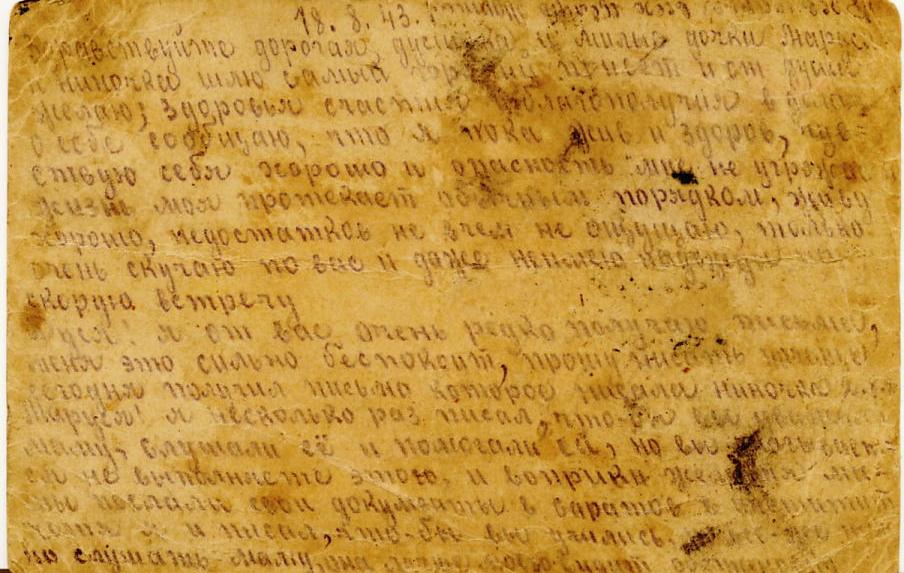 18. 8. 43.
Здравствуйте дорогая дусинька и милые дочки Маруся
и ниночка шлю самый горячий привет и от души
желаю, здоровья счастья и благополучия в
о себе сообщаю, что я пока жив и здоров, чув-
ствую себя хорошо и опасность мне не угрожает
жизнь моя протекает обычным порядком, живу
хорошо, недостатков не в чем не ощущаю, только
очень скучаю по вас и даже неимею надежды на
скорую встречу
Дуся! я от вас очень редко получаю письма,
меня это сильно беспокоит, прошу писать
сегодня получил письмо которое писала ниночка
Маруся! я несколько раз писал, что-бы вы
маму, слушали её и помогали ей, но вы
не выполняете этого и воприки
послали свои документы в саратов в
я и писал, что-бы вы учились.
но слушать маму, она